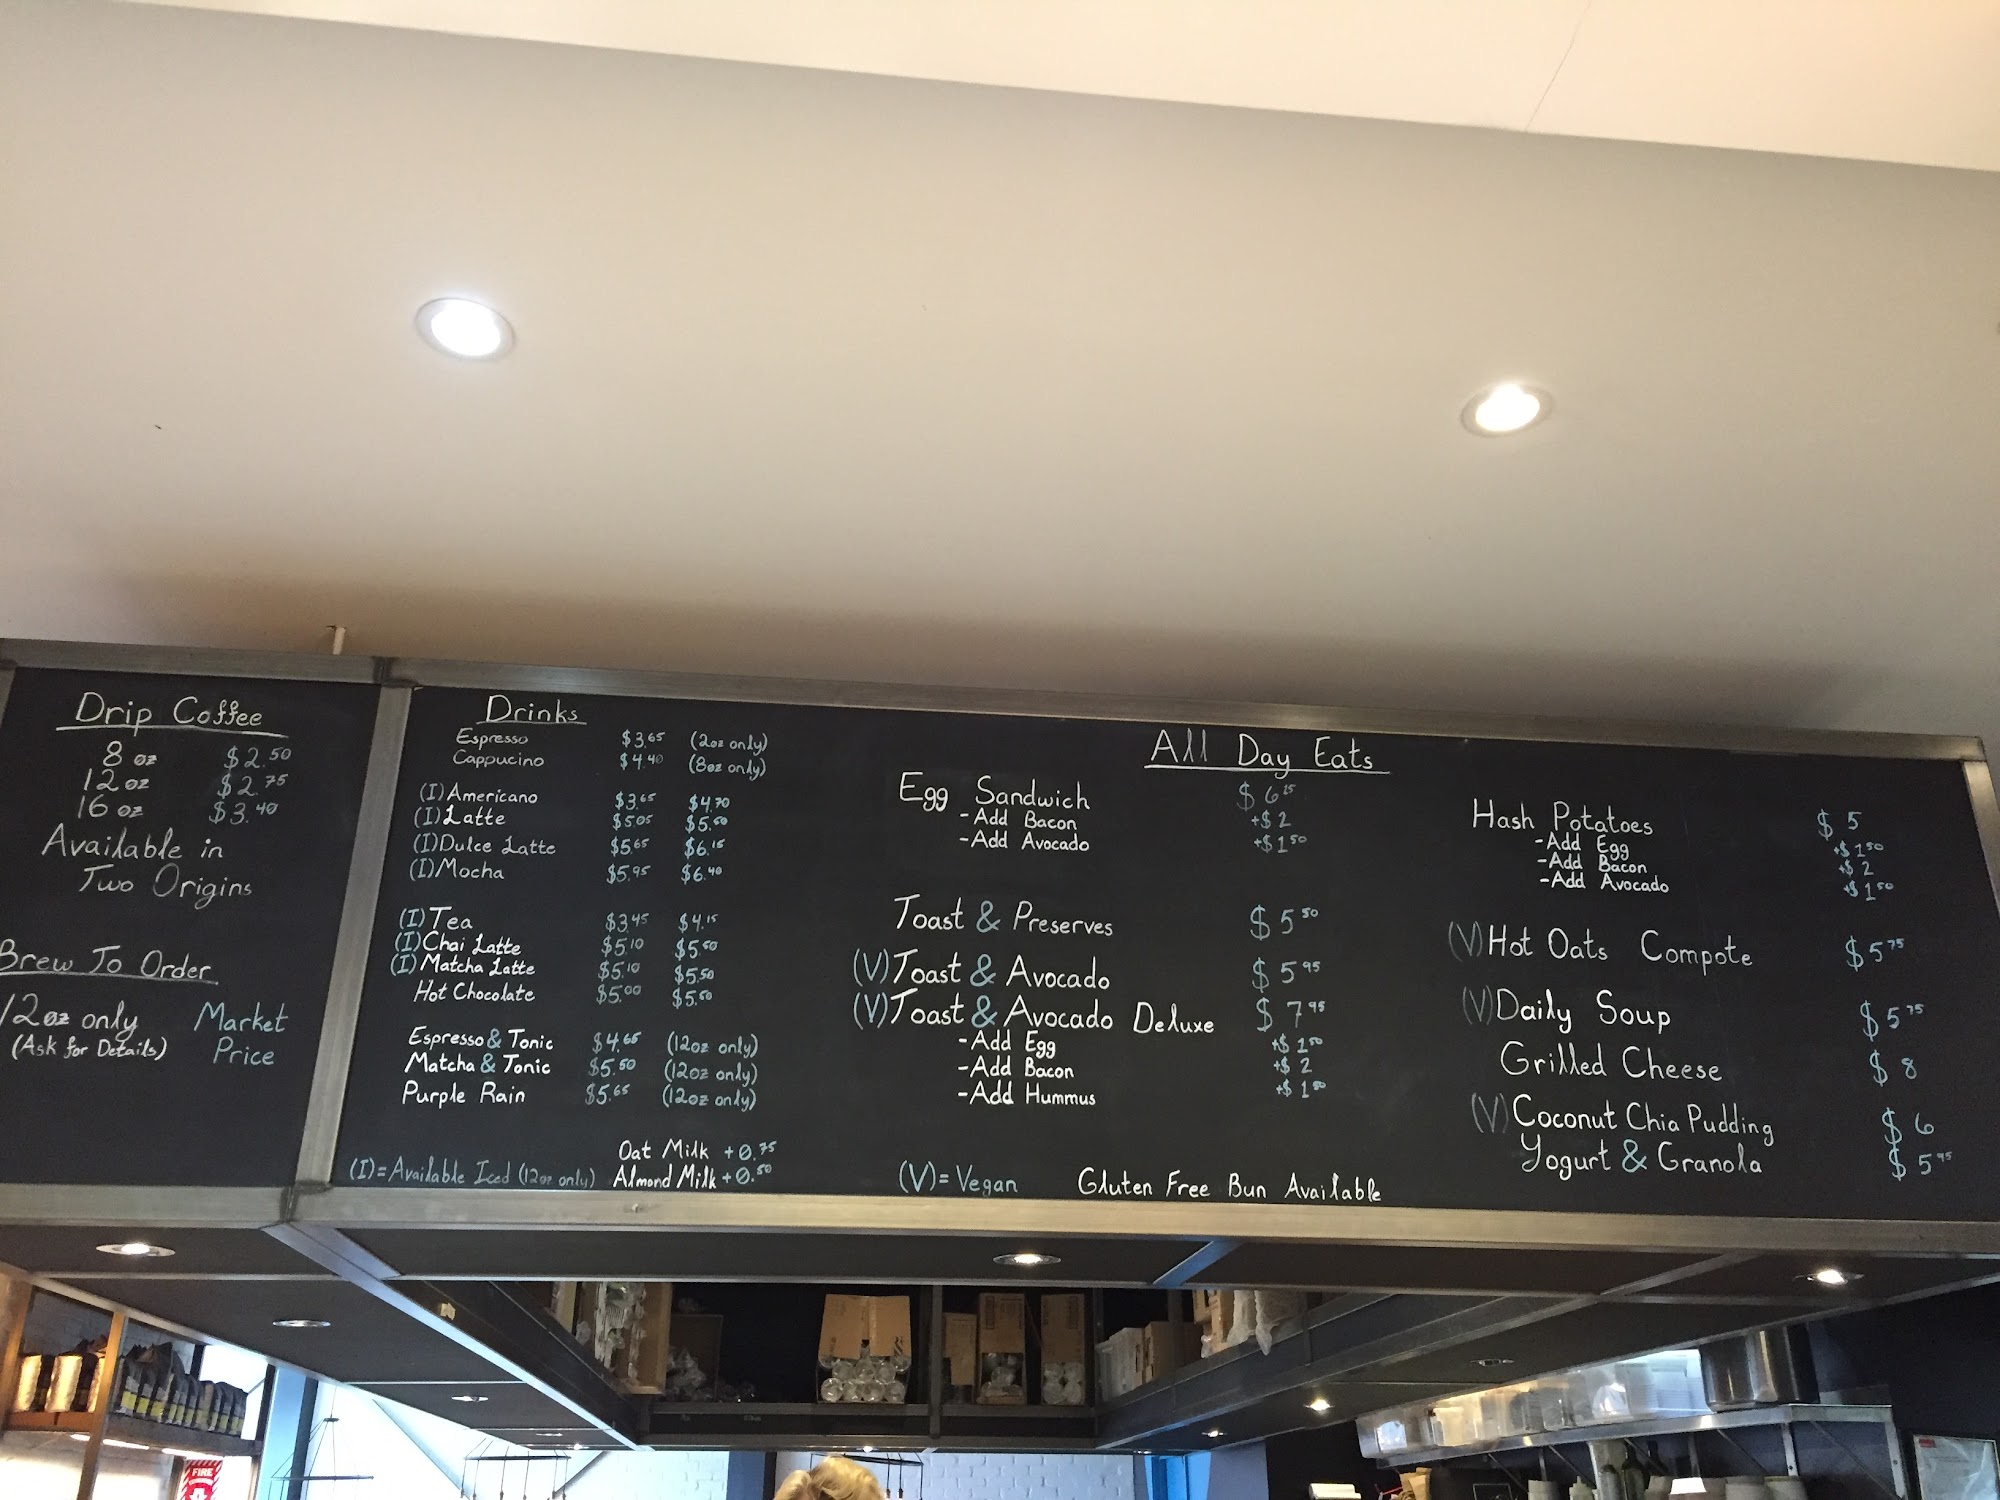 Drip Coffee
8 oz $2.50
12 oz $2.75
16 oz $3.40
Available in
Two Origins
Brew To Order
12oz only Market
(Ask for Details) Price
Drinks
Espresso $3.65 (2oz only)
Cappucino $4.40 (8oz only)
(I) Americano $3.65 $4.70
(I) Latte $5.05 $5.50
(I) Dulce Latte $5.65 $6.15
(I) Mocha $5.95 $6.40
(I) Tea $3.45 $4.15
(I) Chai Latte $5.10 $5.50
(I) Matcha Latte $5.10 $5.50
Hot Chocolate $5.00 $5.50
Espresso & Tonic $4.65 (12oz only)
Matcha & Tonic $5.50 (12oz only)
Purple Rain $5.65 (12oz only)
Oat Milk +0.75
(I) = Available Iced (12oz only) Almond Milk +0.50
All Day Eats
Egg Sandwich $6 25
- Add Bacon +$2
- Add Avocado +$1 50
Toast & Preserves $5 50
(V) Toast & Avocado $5 95
(V) Toast & Avocado Deluxe $7 95
- Add Egg +$1 50
- Add Bacon +$2
- Add Hummus +$1 50
(V) = Vegan Gluten Free Bun Available
Hash Potatoes $5
- Add Egg +$1 50
- Add Bacon +$2
- Add Avocado +$1 50
(V) Hot Oats Compote $5 75
(V) Daily Soup $5 75
Grilled Cheese $8
(V) Coconut Chia Pudding $6
Yogurt & Granola $5 95
FIRE